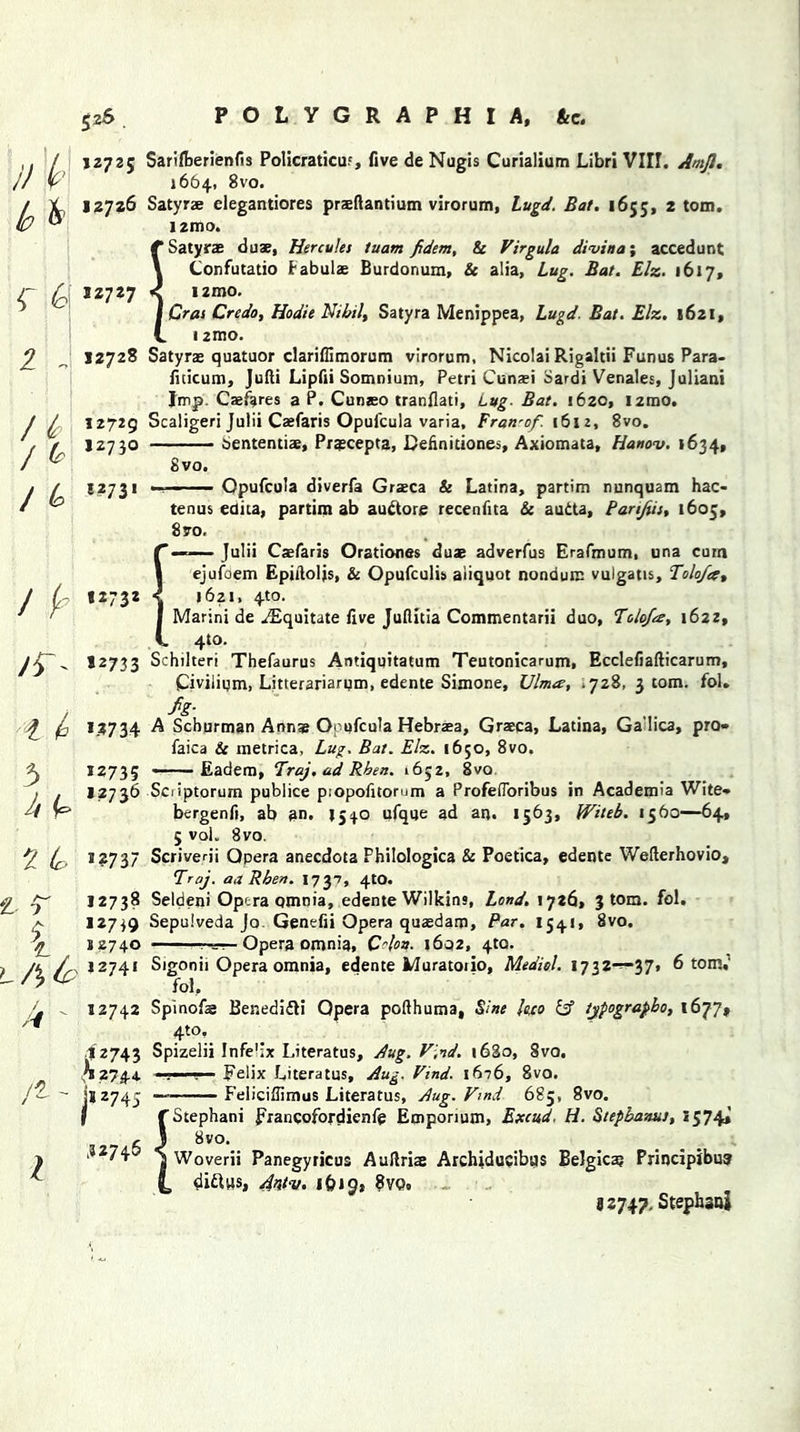 526 POLYGRAPHIA, &c.
12725 Sarisberiensis Policraticus, sive de Nugis Curialium Libri VIII. Amst.
1664, 8vo.
12726 Satyræ elegantiores præstantium virorum, Lugd. Bat. 1655, 2 tom.
12mo.
Satyræ duæ, Hercules tuam fidem, & Virgula divina; accedunt
Confutatio Fabulæ Burdonum, & alia, Lug. Bat. Elz. 1617,
12727 12mo.
Cras Credo, Hodie Nihil, Satyra Menippea, Lugd. Bat. Elz. 1621,
12mo.
12728 Satyræ quatuor clarissimorum virorum, Nicolai Rigaltii Funus Para-
siticum, Justi Lipsii Somnium, Petri Cunæi Sardi Venales, Juliani
Imp. Cæsares a P. Cunæo translati, Lug. Bat. 1620, 12mo.
12729 Scaligeri Julii Cæsaris Opuscula varia, Francof. 1612, 8vo.
12730 ——— Sententiæ, Præcepta, Definitiones, Axiomata, Hanov. 1634,
8vo.
12731 ——— Opuscula diversa Græca & Latina, partim nunquam hac-
tenus edita, partim ab auctore recensita & aucta, Parisiis, 1605,
8vo.
——— Julii Cæsaris Orationes duæ adversus Erasmum, una cum
ejusdem Epistolis, & Opusculis aliquot nondum vulgatis, Tolosæ,
12732 1621, 4to.
Marini de Æquitate sive Justitia Commentarii duo, Tolosæ, 1622,
4to.
12733 Schilteri Thesaurus Antiquitatum Teutonicarum, Ecclesiasticarum,
Civilium, Litterariarum, edente Simone, Ulmæ, 1728, 3 tom. fol.
fig.
12734 A Schurman Annæ Opuscula Hebræa, Græca, Latina, Gallica, pro-
saica & metrica, Lug. Bat. Elz. 1650, 8vo.
12735 ——— Eadem, Traj. ad Rhen. 1652, 8vo
12736 Scriptorum publice propositorum a Professoribus in Academia Wite-
bergensi, ab an. 1540 usque ad an. 1563, Witeb. 1560—64,
5 vol. 8vo.
12737 Scriverii Opera anecdota Philologica & Poetica, edente Westerhovio,
Traj. ad Rhen. 1737, 4to.
12738 Seldeni Opera omnia, edente Wilkins, Lond. 1726, 3 tom. fol.
12739 Sepulveda Jo. Genesii Opera quædam, Par. 1541, 8vo.
12740 ——— Opera omnia, Colon. 1602, 4to.
12741 Sigonii Opera omnia, edente Muratorio, Mediol. 1732—37, 6 tom.
fol.
12742 Spinosæ Benedicti Opera posthuma, Sine loco & typographo, 1677,
4to.
12743 Spizelii Infelix Literatus, Aug. Vind. 1680, 8vo.
12744 ——— Felix Literatus, Aug. Vind. 1676, 8vo.
12745 ——— Felicissimus Literatus, Aug. Vind 685, 8vo.
Stephani Francofordiense Emporium, Excud. H. Stephanus, 1574,
12746 8vo.
Woverii Panegyricus Austriæ Archiducibus Belgicæ Principibus
dictus, Antv. 1619, 8vo.
12747. Stephani